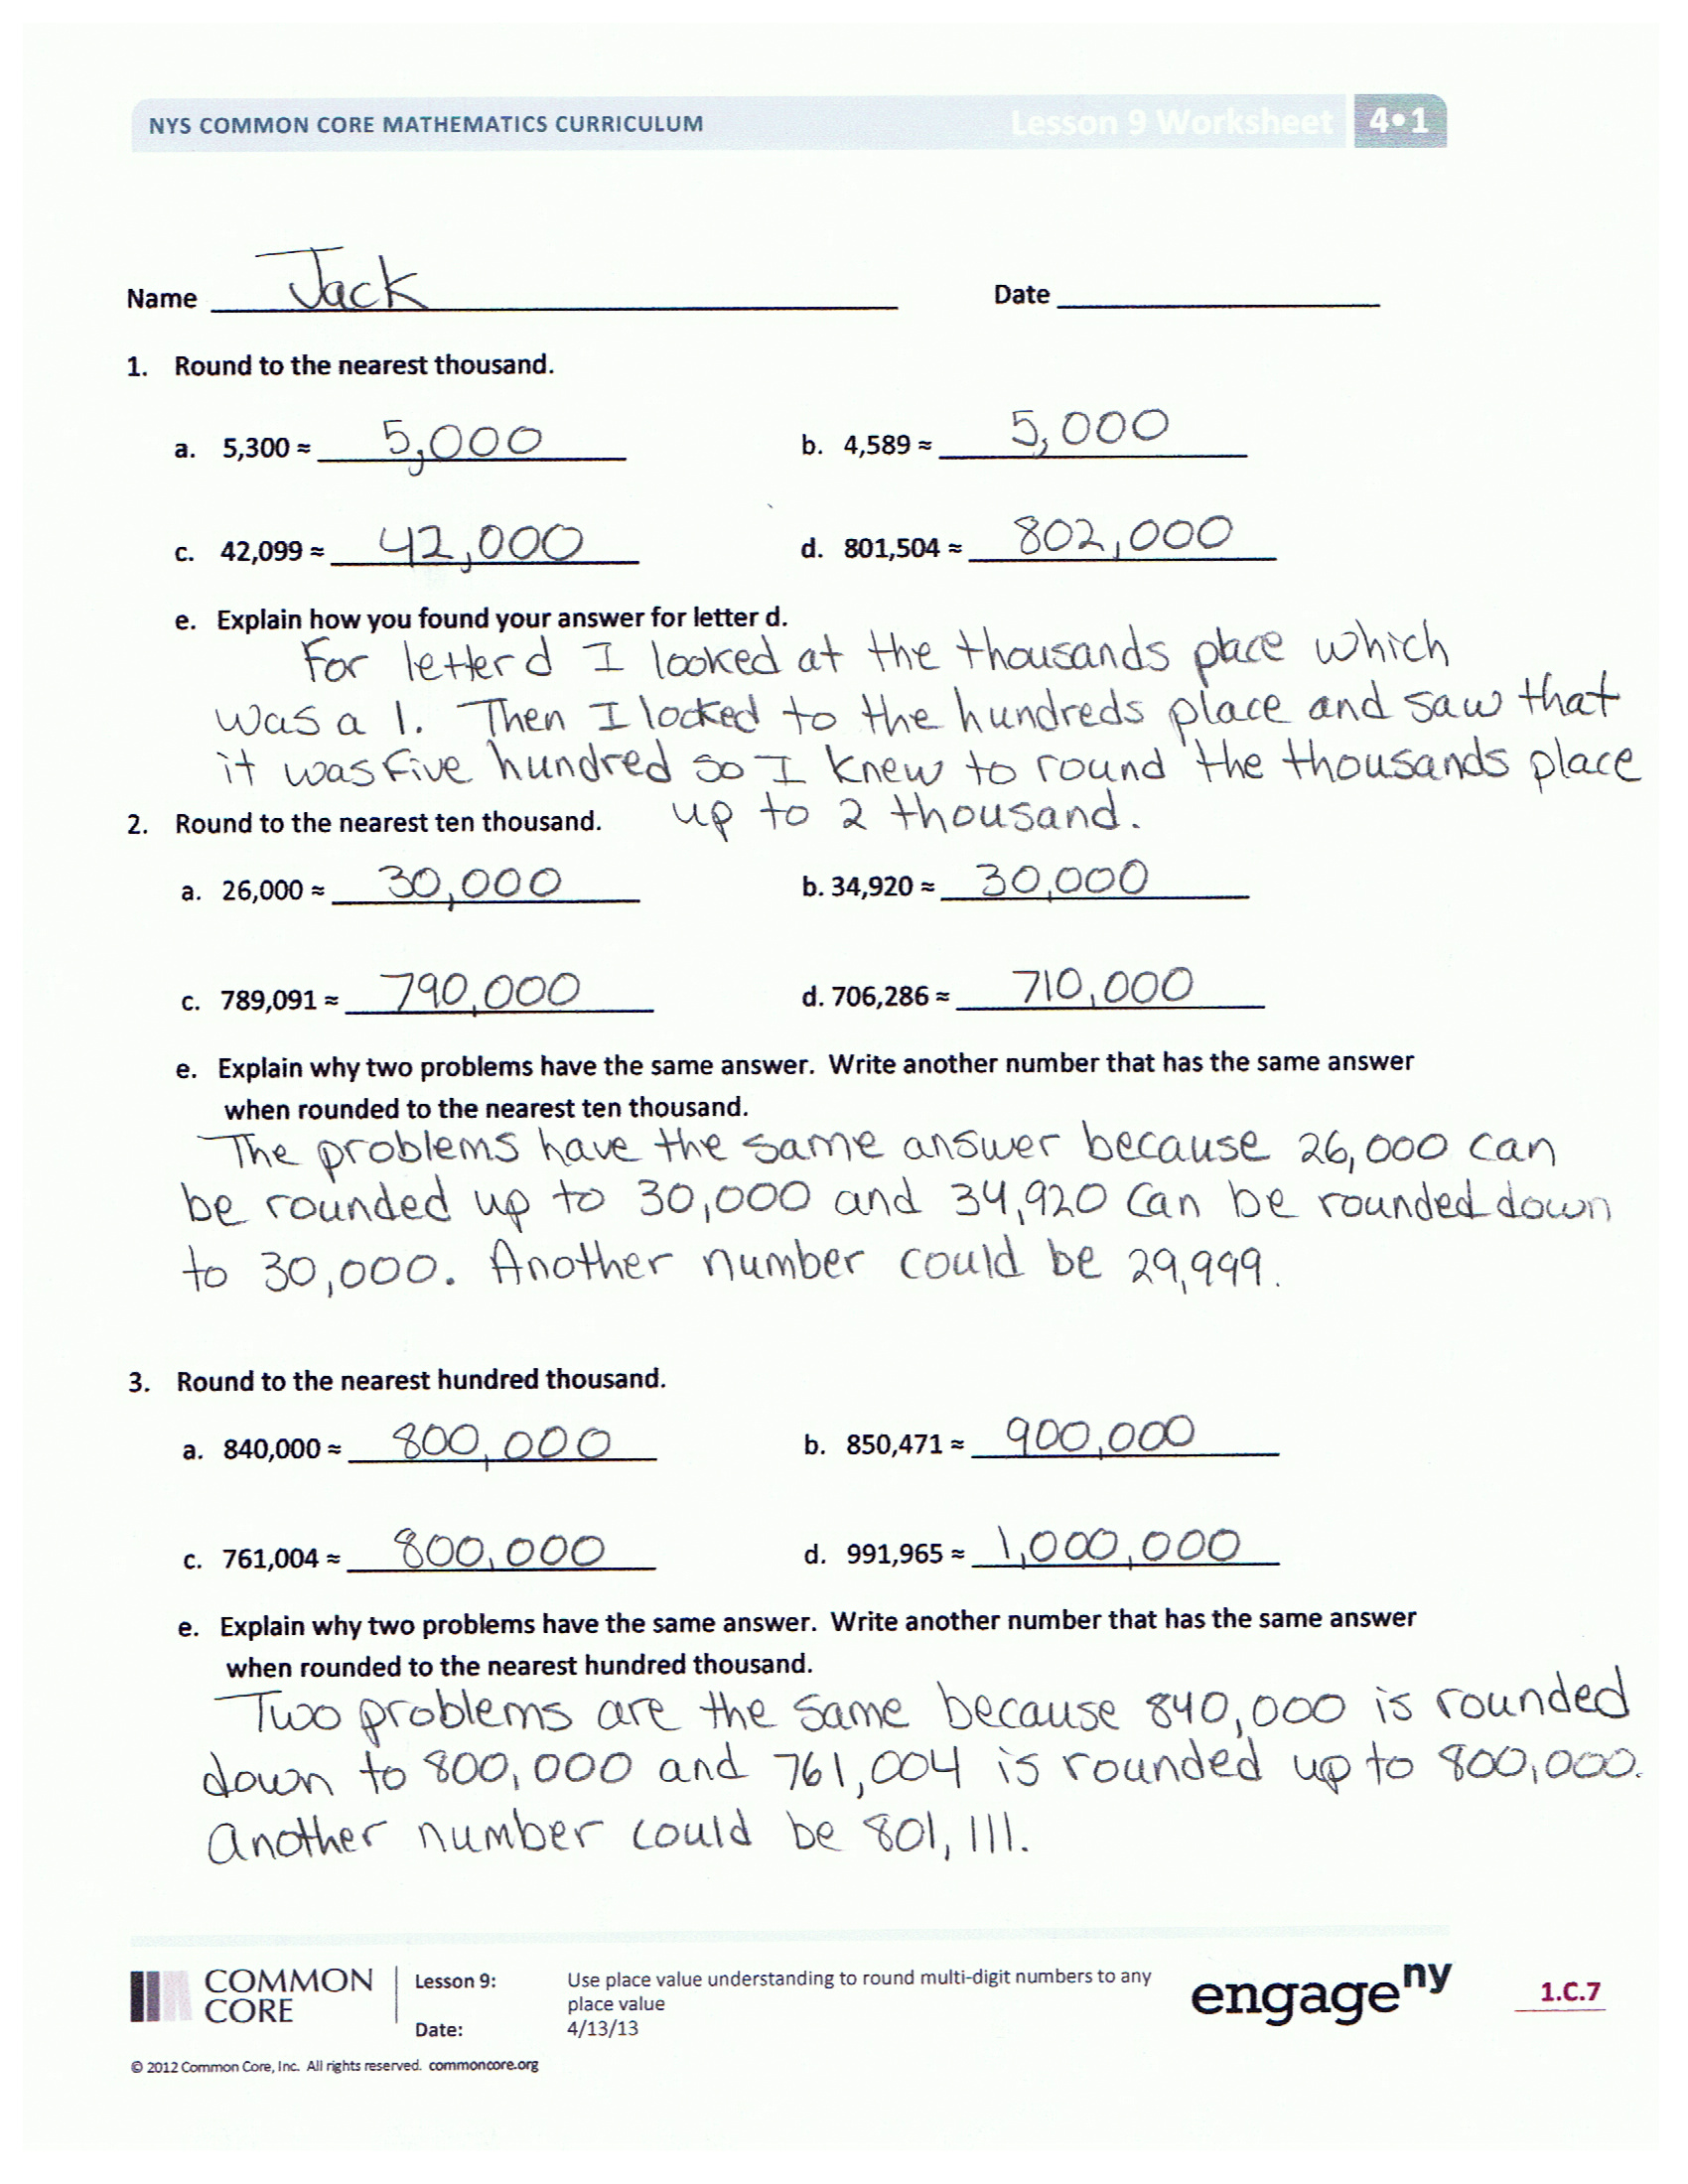 NYS COMMON CORE MATHEMATICS CURRICULUM Lesson 9 Worksheet 4•1
Name Jack Date
1. Round to the nearest thousand.
a. 5,300 ≈ 5,000 b. 4,589 ≈ 5,000
c. 42,099 ≈ 42,000 d. 801,504 ≈ 802,000
e. Explain how you found your answer for letter d.
For letter d I looked at the thousands place which
was a 1. Then I looked to the hundreds place and saw that
it was five hundred so I knew to round the thousands place
up to 2 thousand.
2. Round to the nearest ten thousand.
a. 26,000 ≈ 30,000 b. 34,920 ≈ 30,000
c. 789,091 ≈ 790,000 d. 706,286 ≈ 710,000
e. Explain why two problems have the same answer. Write another number that has the same answer
when rounded to the nearest ten thousand.
The problems have the same answer because 26,000 can
be rounded up to 30,000 and 34,920 can be rounded down
to 30,000. Another number could be 29,999.
3. Round to the nearest hundred thousand.
a. 840,000 ≈ 800,000 b. 850,471 ≈ 900,000
c. 761,004 ≈ 800,000 d. 991,965 ≈ 1,000,000
e. Explain why two problems have the same answer. Write another number that has the same answer
when rounded to the nearest hundred thousand.
Two problems are the same because 840,000 is rounded
down to 800,000 and 761,004 is rounded up to 800,000.
Another number could be 801,111.
COMMON CORE
Lesson 9: Use place value understanding to round multi-digit numbers to any
place value
Date: 4/13/13
engageny
1.C.7
© 2012 Common Core, Inc. All rights reserved. commoncore.org